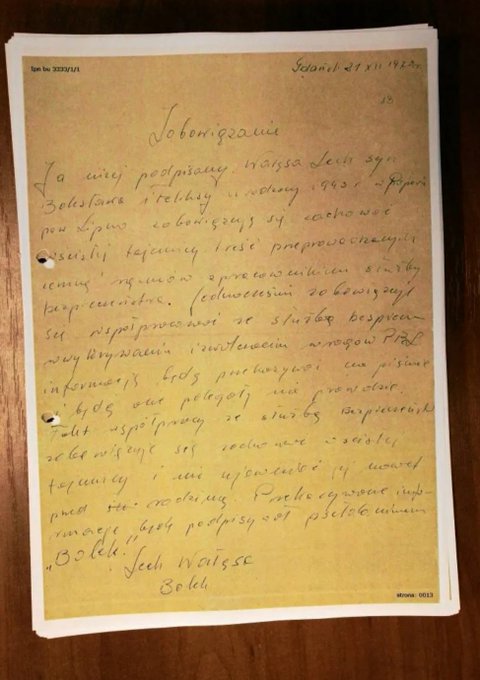 Ipn bu 3333/1/1
Gdańsk 21 XII 1970r.
13
Zobowiązanie
Ja niżej podpisany Wałęsa Lech syn
Bolesława i Feliksy urodzony 1943r w Popowo
pow Lipno zobowiązują się zachować
w ścisłej tajemnicy treść przeprowadzanych
zemną rozmów z pracownikiem służby
bezpieczeństwa. Jednocześnie zobowiązuję
się współpracować ze służbą bezpiecz
w wykrywaniu i zwalczaniu wrogów PRL
informację będę przekazywał na piśmie
i będą one polegały na prawdzie.
Fakt współpracy ze służbą bezpieczeńst
zobowiązuje się zachować w ścisłej
tajemnicy i nie ujawniać jej nawet
przed rodziną. Przekazywane infor-
macje będę podpisywał pseudonimem
„Bolek."
Lech Wałęsa
Bolek
strona: 0013